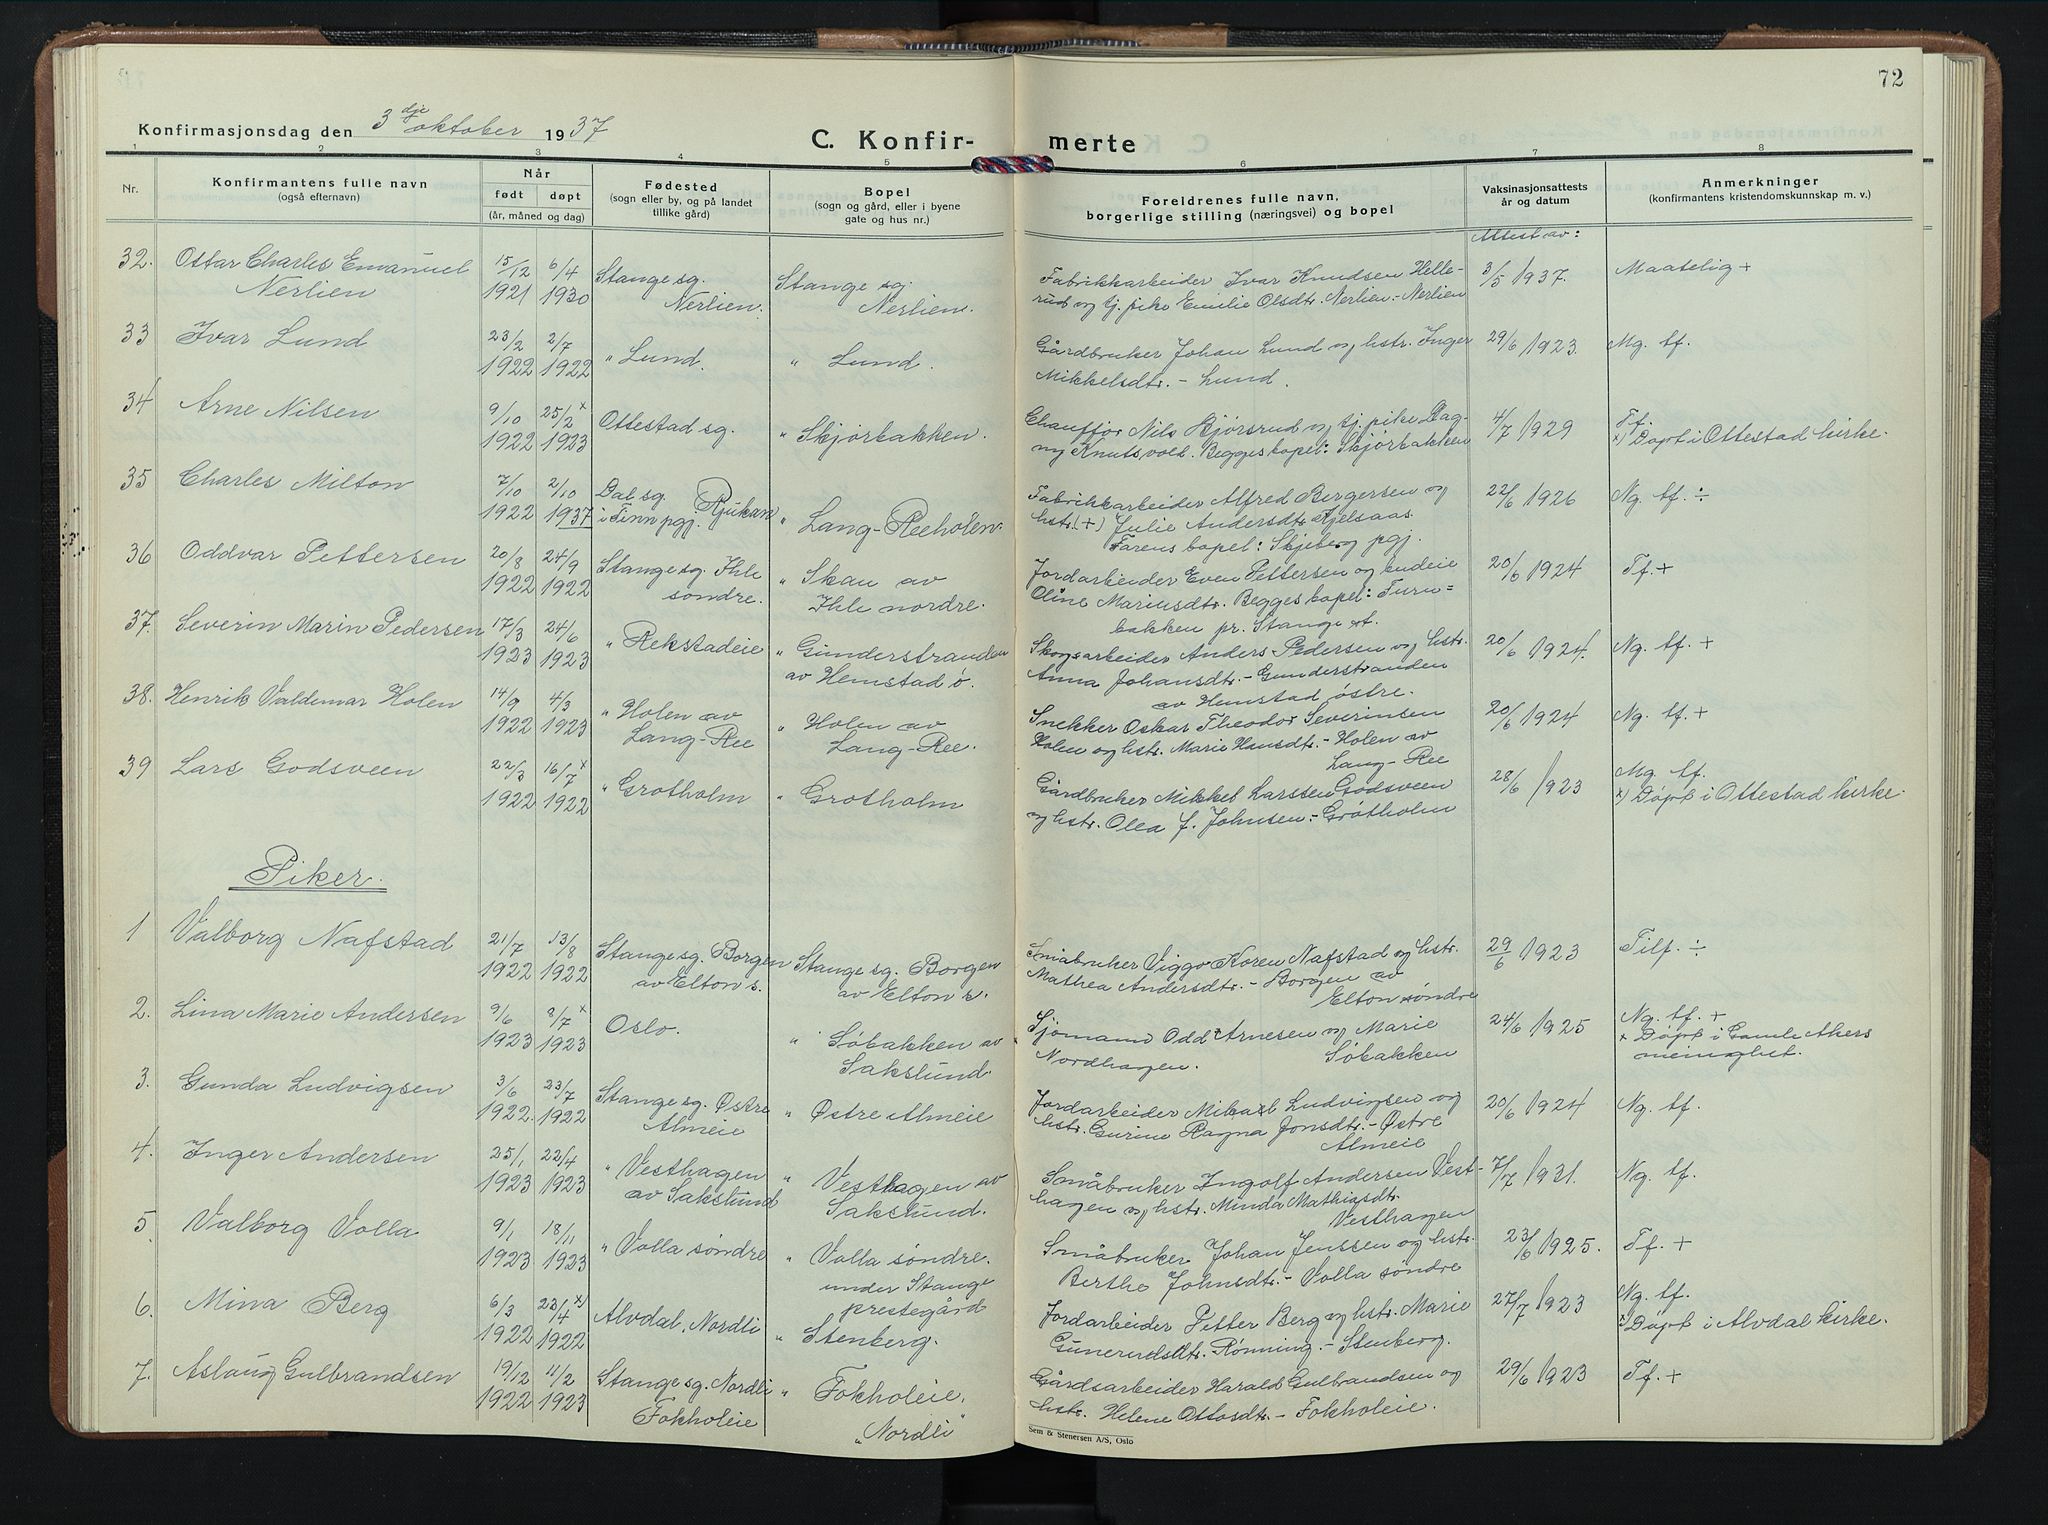 72
Konfirmasjonsdag den 3dje oktober 1937
C. Konfir-
merte
1 2 3 4 5 6 7 8
Nr.
Konfirmantens fulle navn
(også efternavn)
Når
født døpt
(år, måned og dag)
Fødested
(sogn eller by, og på landet
tillike gård)
Bopel
(sogn og gård, eller i byene
gate og hus nr.)
Foreldrenes fulle navn,
borgerlige stilling (næringsvei) og bopel
Vaksinasjonsattests
år og datum
Anmerkninger
(konfirmantens kristendomskunnskap m. v.)
Attest av:
32. Ottar Charles Emanuel Nerlien 15/12 1921 6/4 1930 Stange sg. Nerlien. Stange sg. Nerlien. Fabrikkarbeider Ivar Knudsen Helle-
rud og tj. pike Emilie Olsdtr. Nerlien - Nerlien 3/5 1937. Maatelig +
33 Ivar Lund 23/2 1922 2/7 1922 " Lund. " Lund. Gårdbruker Johan Lund og hstr. Inger
Mikkelsdtr. - Lund. 29/6 1923. Mg. tf.
34 Arne Nilsen 9/10 1922 25/2 x 1923 Ottestad sg. " Skjørbakken. Chauffør Nils Bjørsrud og tj. pike Dag-
ny Knutsvolt. Begges bopel: Skjørbakken 4/7 1929 Tf.
x) Døpt i Ottestad kirke.
35 Charles Milton 7/10 1922 2/10 1937 Dal sg. Rjukan
i Tinn pgj. " Lang-Reeholen. Fabrikkarbeider Alfred Bergersen og
hstr. (+) Julie Andersdtr. Kjelsaas.
Farens bopel: Skjeberg pgj. 22/6 1926 Ng. tf. ÷
36 Oddvar Pettersen 20/8 1922 24/9 1922 Stange sg. Ihle
søndre. " Skau av
Ihle nordre. Jordarbeider Even Pettersen og budeie
Oline Mariusdtr. Begges bopel: Furu=
bakken pr. Stange st. 20/6 1924 Tf. +
37. Severin Marin Pedersen 17/3 1923 24/6 1923 " Rekstadeie " Gunderstranden
av Hemstad ø. Skogsarbeider Anders Pedersen og hstr.
Anna Johansdtr. - Gunderstranden
av Hemstad østre. 20/6 1924. Ng. tf. +
38. Henrik Valdemar Holen 14/9 1922 4/3 1923 " Holen av
Lang-Ree " Holen av
Lang-Ree. Snekker Oskar Theodor Severinsen
Holen og hstr. Marie Hansdtr. - Holen av
Lang-Ree 20/6 1924 Ng. tf. +
39 Lars Godsveen 22/3 1922 16/7 x 1922 " Grøtholm " Grøtholm Gårdbruker Mikkel Larssen Godsveen
og hstr. Olea J. Johnsen - Grøtholm 28/6 1923 Mg. tf.
x) Døpt i Ottestad kirke.
Piker.
1 Valborg Nafstad 21/7 1922 13/8 1922 Stange sg. Borgen
av Elton s. Stange sg. Borgen
av Elton s. Småbruker Viggo Koren Nafstad og hstr.
Mathea Andersdtr. - Borgen av
Elton søndre 29/6 1923 Tilf. ÷
2. Lina Marie Andersen 9/6 1923 8/7 x 1923 Oslo. " Søbakken av
Sakslund. Sjømann Odd Arnesen og Marie
Nordhagen. Søbakken 24/6 1925 Ng. tf. +
x Døpt i Gamle Akers
menighet.
3. Gunda Ludvigsen 3/6 1922. 23/7 1922 Stange sg. Østre
Almeie " Østre Almeie Jordarbeider Mikael Ludvigsen og
hstr. Gurine Ragna Jonsdtr. - Østre
Almeie 20/6 1924 Ng. tf.
4. Inger Andersen 25/1 1923 22/4 1923 " Vesthagen
av Sakslund " Vesthagen av
Sakslund. Småbruker Ingolf Andersen Vest-
hagen og hstr. Minda Mathiasdtr.
Vesthagen 7/7 1931. Ng. tf.
5. Valborg Volla 9/1 1923 18/11 1923 " Volla søndre " Volla søndre.
under Stange
prestegård Småbruker Johan Jenssen og hstr.
Berthe Johnsdtr. - Volla søndre 23/6 1925. Tf. +
6. Mina Berg 6/3 1922 23/4 x) 1922 Alvdal, Nordli " Stenberg. Jordarbeider Petter Berg og hstr. Marie
Gunerudsdtr. Rønning. - Stenberg. 27/7 1923 Ng. tf.
x) Døpt i Alvdal kirke.
7. Aslaug Gulbrandsen 19/12 1922 11/2 1923 Stange sg. Nordli
Fokholeie " Fokholeie.
"Nordli" Gårdsarbeider Harald Gulbrandsen og
hstr. Helene Ottosdtr. - Fokholeie. 29/6 1923 Tf. +
Sem & Stenersen A/S, Oslo